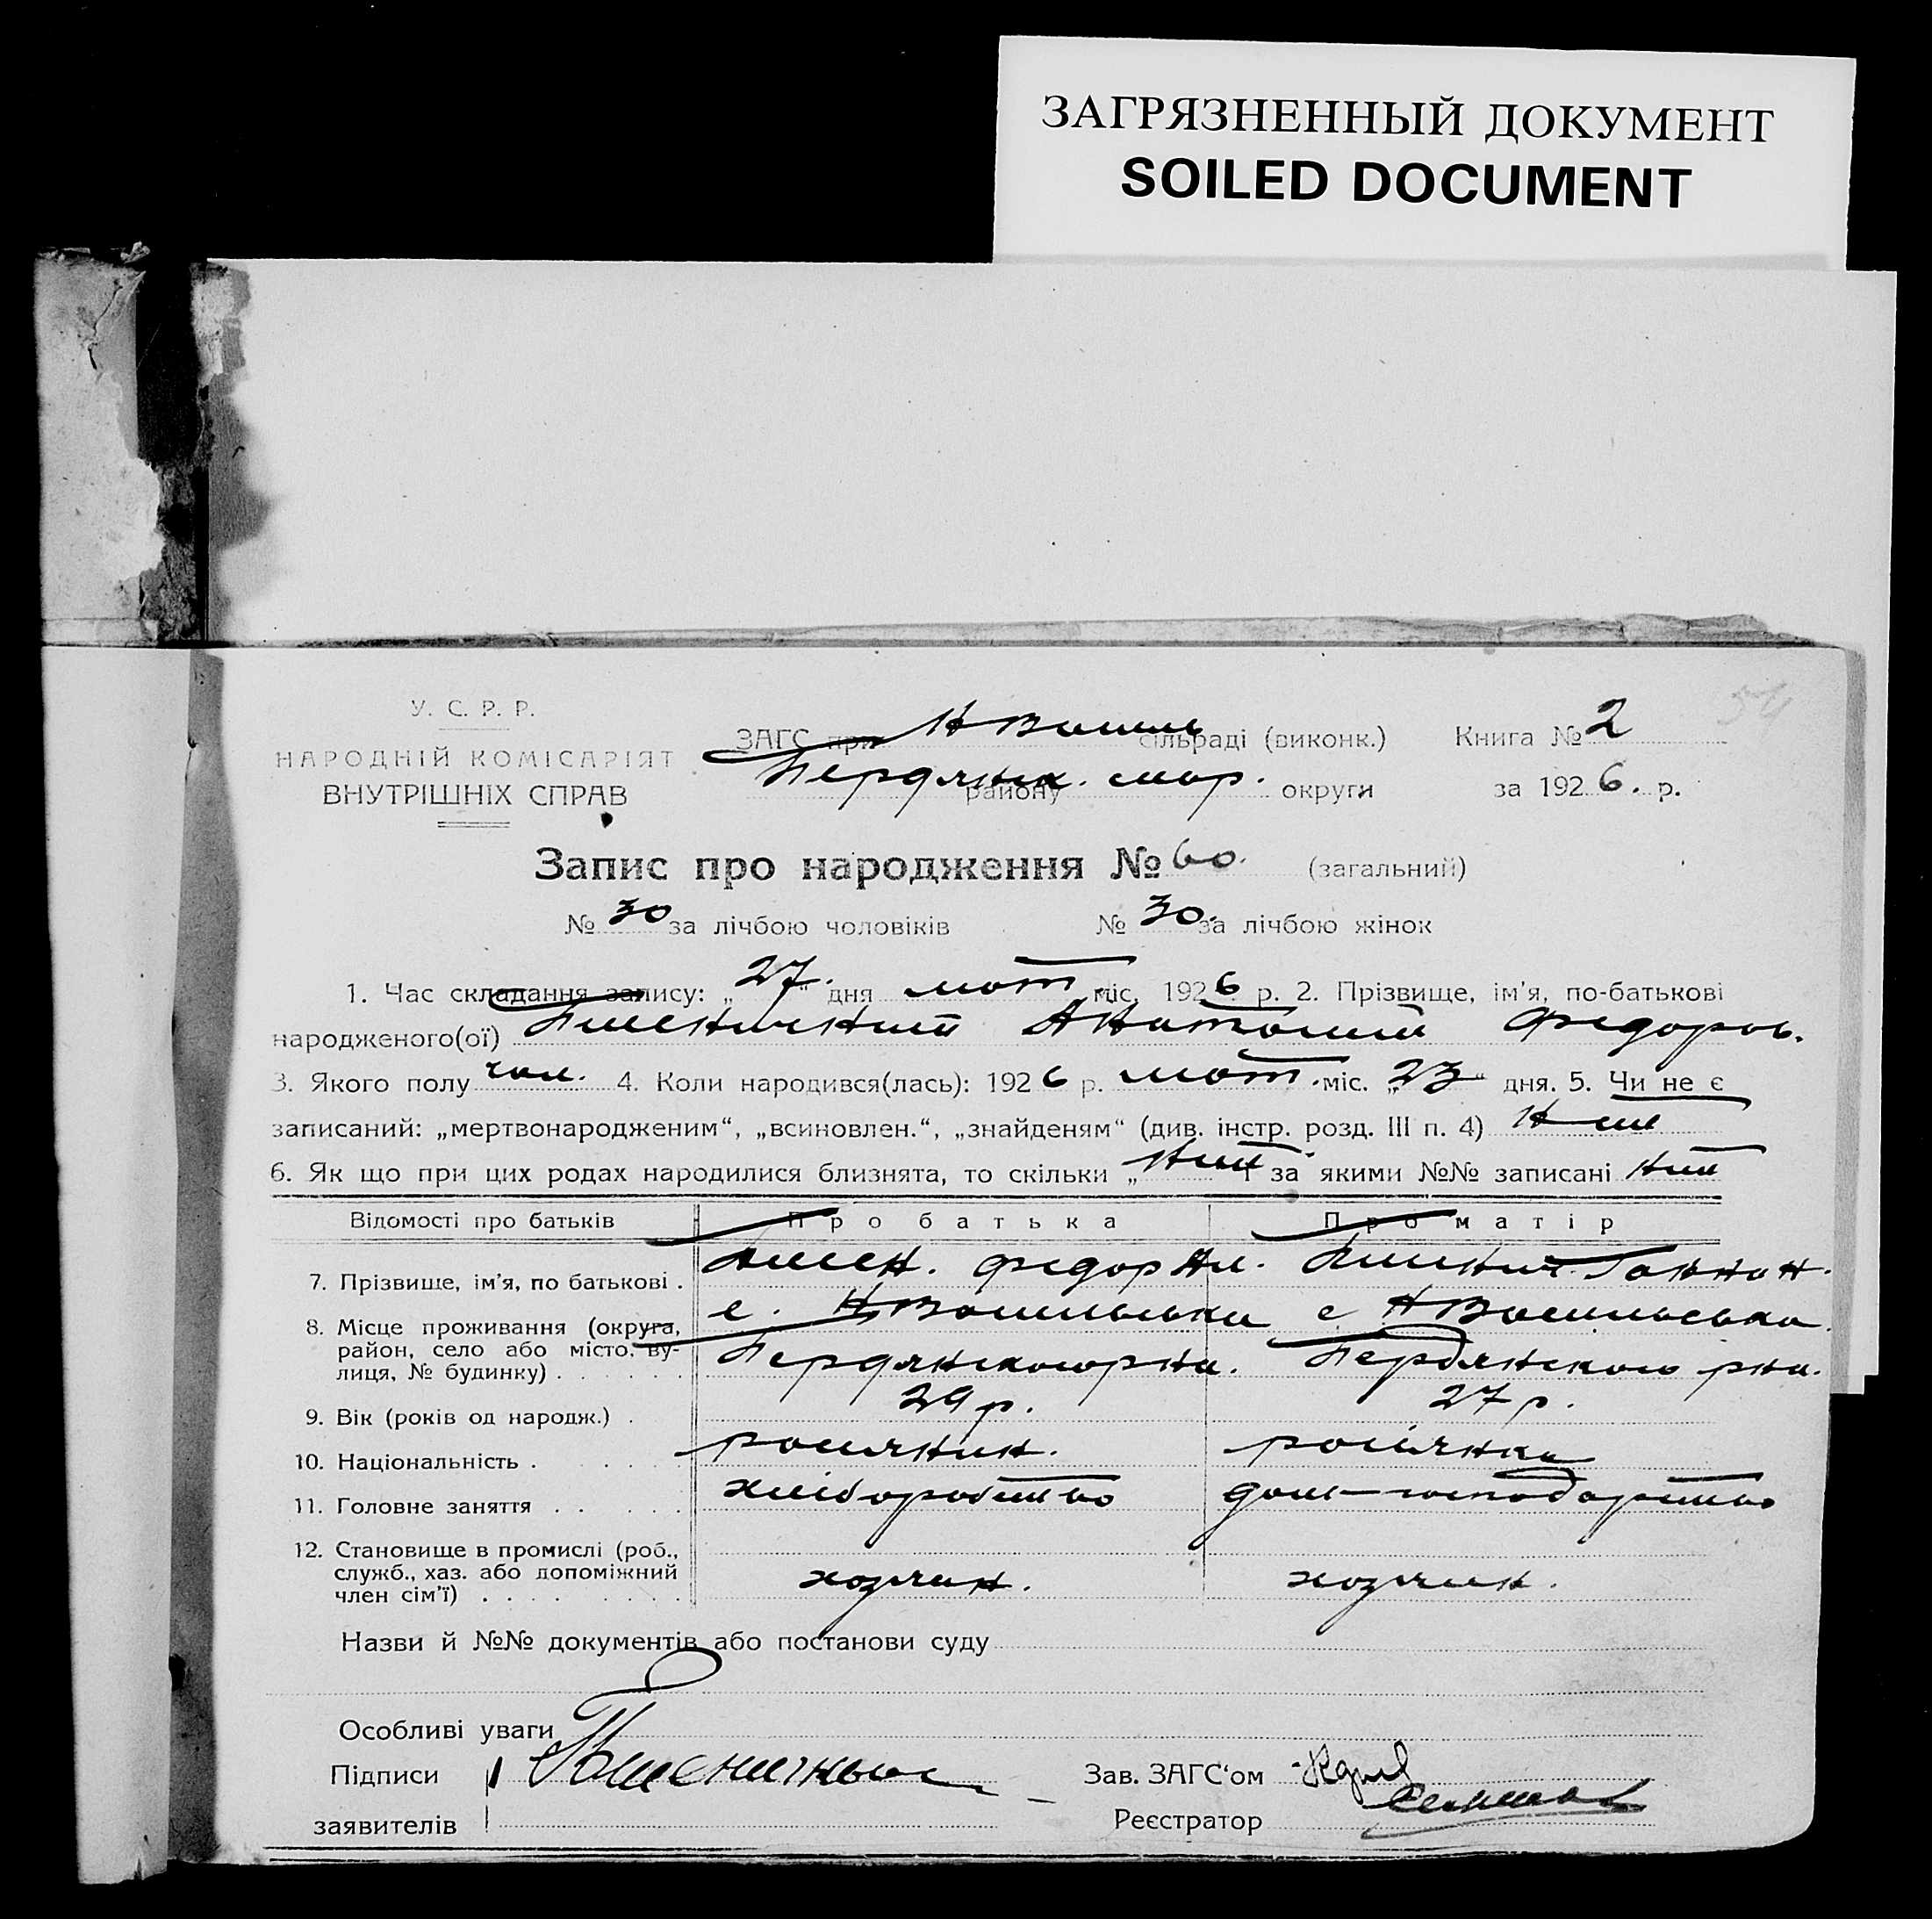 ЗАГРЯЗНЕННЫЙ ДОКУМЕНТ
SOILED DOCUMENT
54
У. С. Р. Р.
НАРОДНІЙ КОМІСАРІЯТ
ВНУТРІШНІХ СПРАВ
ЗАГС при Н Васил сільраді (виконк.) Книга № 2
Бердянск. району мар. округи за 1926. р.
Запис про народження № 60. (загальний)
№ 30 за лічбою чоловіків № 30. за лічбою жінок
1. Час складання запису: „27." дня лют. міс. 1926 р. 2. Прізвище, ім'я, по-батькові
народженого(ої) Пшеничний Анатолій Федоров.
3. Якого полу чол. 4. Коли народився(лась): 1926 р. лют. міс. „23" дня. 5. Чи не є
записаний: „мертвонародженим", „всиновлен.", „знайденям" (див. інстр. розд. III п. 4) Н
6. Як що при цих родах народилися близнята, то скільки „ за якими №№ записані
Відомості про батьків Про батька Про матір
7. Прізвище, ім'я, по батькові . Пшен. Федор Пшенич. Ганна
8. Місце проживання (округа, с. НВасильевка с НВасильевка
район, село або місто, ву- Бердянского рна. Бердянского рна.
лиця, № будинку)
9. Вік (років од народж.) . 29 р. 27 р.
10. Національність . росіянин. росіянка
11. Головне заняття хліборобство дом-господарство
12. Становище в промислі (роб.,
служб., хаз. або допоміжний хозяин. хозяин.
член сім'ї)
Назви й №№ документів або постанови суду
Особливі уваги
Підписи Пшеничный Зав. ЗАГС'ом
заявителів Реєстратор